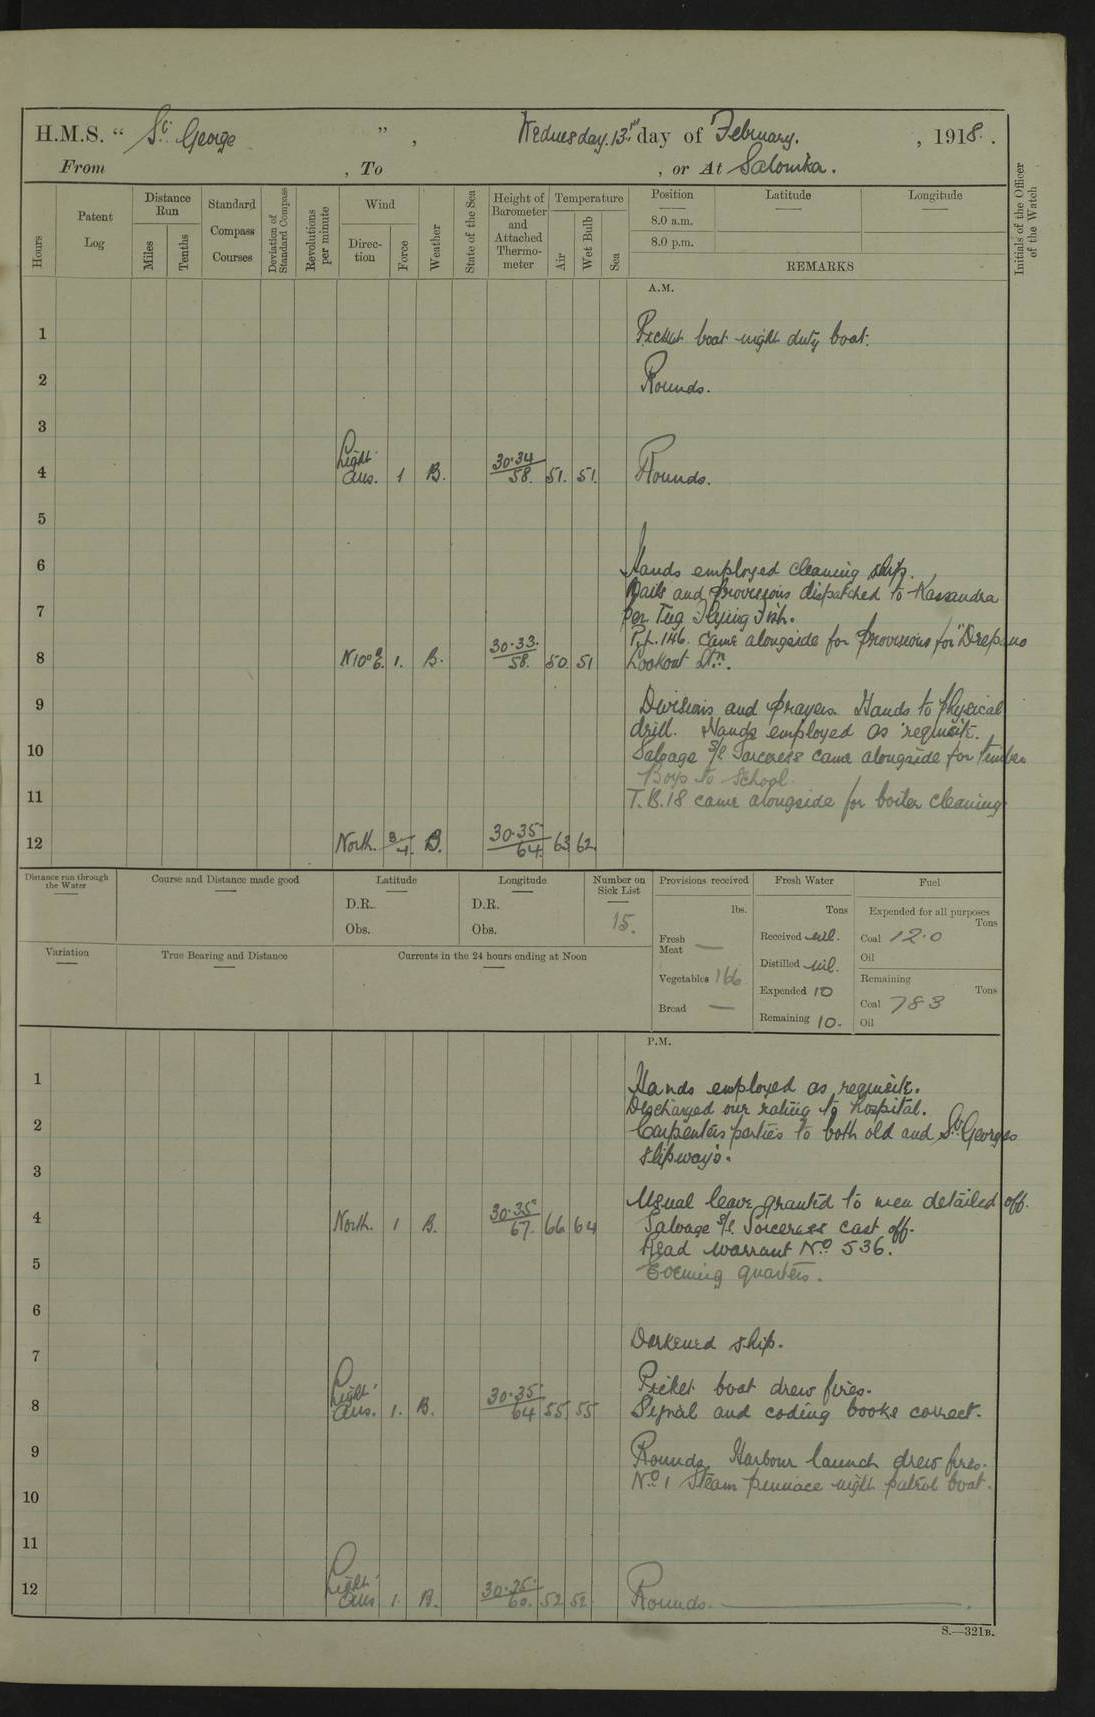 H.M.S. “ St George ” , Wednesday. 13th day of February. , 1918.
From , To , or At Salonika.
Hours
Patent Log
Distance Run
Miles
Tenths
Standard Compass Courses
Deviation of Standard Compass
Revolutions per minute
Wind
Direc-tion
Force
Weather
State of the Sea
Height of Barometer and Attached Thermo-meter
Temperature
Air
Wet Bulb
Sea
Position
Latitude
Longitude
8.0 a.m.
8.0 p.m.
REMARKS
Initials of the Officer of the Watch
A.M.
1 Picket boat night duty boat.
2 Rounds.
3
4 Light airs. 1 B. 30.34/58. 51. 51. Rounds.
5
6 Hands employed cleaning ship.
Mails and provisions dispatched to Kassandra
7 per Tug Flying Fish.
146. came alongside for provisions for "Drepano
8 1. B. 30.33./58. 50. 51 Lookout Stn.
9 Divisions and prayers. Hands to physical
drill. Hands employed as requisite.
10 Salvage S/S Sorceress came alongside for timber
Boys to School.
11 T.B.18 came alongside for boiler cleaning
12 North. 3/4. B. 30.35/64. 63 62.
Distance run through the Water
Course and Distance made good
Latitude
D.R.
Obs.
Longitude
D.R.
Obs.
Number on Sick List
15.
Provisions received
lbs.
Fresh Meat —
Vegetables 166
Bread —
Fresh Water
Tons
Received nil.
Distilled nil.
Expended 10
Remaining 10.
Fuel
Expended for all purposes
Tons
Coal 12.0
Oil
Remaining
Tons
Coal 783
Oil
Variation
True Bearing and Distance
Currents in the 24 hours ending at Noon
P.M.
1 Hands employed as requisite.
Discharged one rating to hospital.
2 Carpenters parties to both old and St Georges
slipways.
3
4 North. 1 B. 30.35/67. 66 64 Usual leave granted to men detailed off.
Salvage S/S Sorceress cast off.
Read warrant No 536.
5 Evening quarters.
6
7 Darkened ship.
Picket boat drew fires.
8 Light airs. 1. B. 30.35/64 55 55 Signal and coding books correct.
9 Rounds. Harbour launch drew fires.
No 1 Steam pinnace night patrol boat.
10
11
12 Light airs 1. B. 60. 52 52. Rounds.
S.—321B.